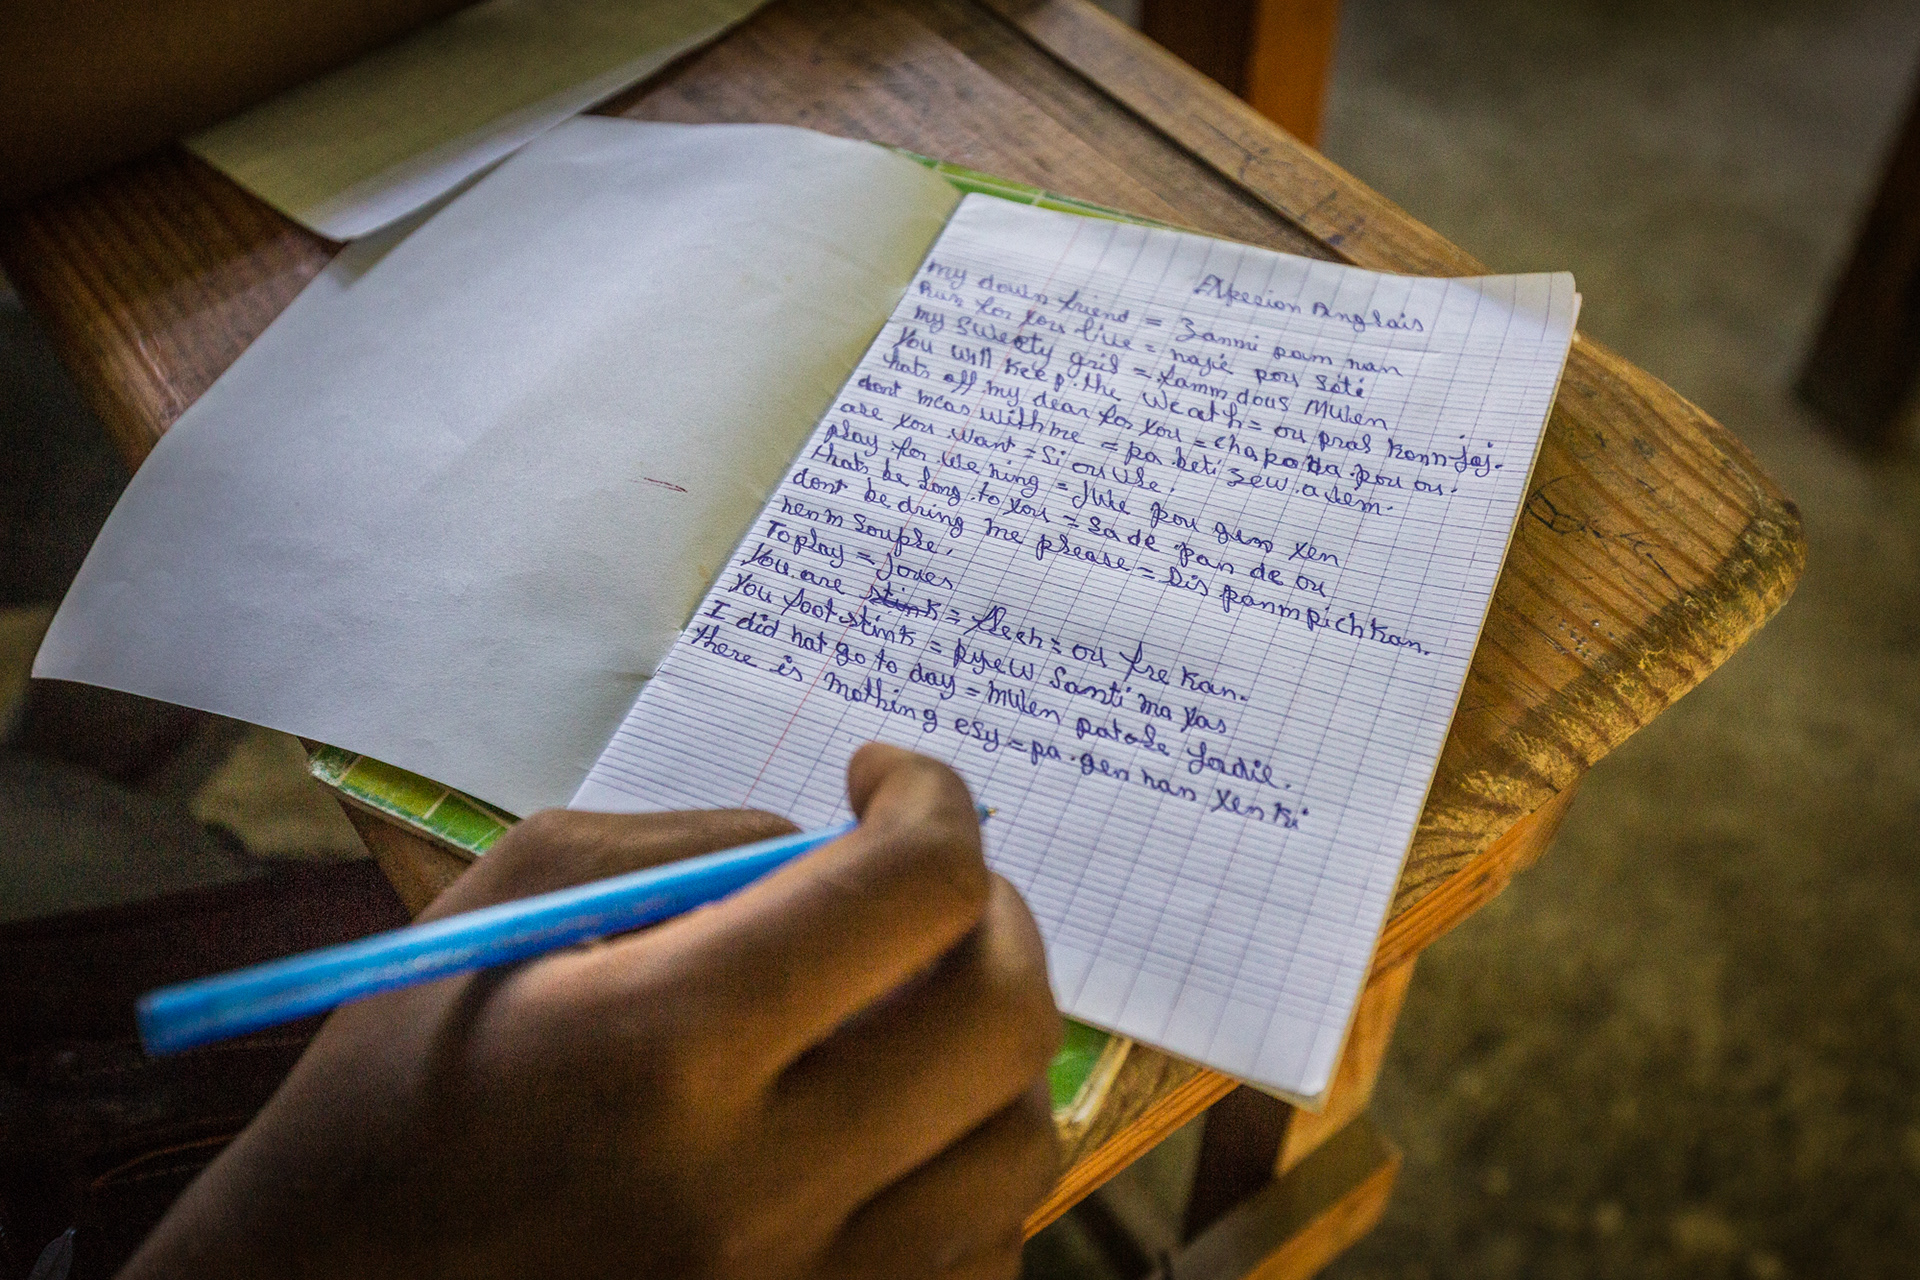 Expecion Anglais
my down friend = Zanmi pam nan
Run for you live = najé pou soti
my sweety gril = famm dous mwen
You will keep the Weath = ou pral konn jaj.
hats off my dear for you = chapo ba pou ou.
dont meas with me = pa betize w avem.
are you want = Si ou vle.
play for We ning = Jwe pou gen yen
thats be long to you = sa de pan de ou
dont be dring me please = Dis panm pich kan.
nenm souple.
To play = jouer
You are stink = flech = ou fre kan.
You foot stink = pye w santi ma yas
I did not go to day = mwen patale jodie.
there is mothing esy = pa gen nan yen ki